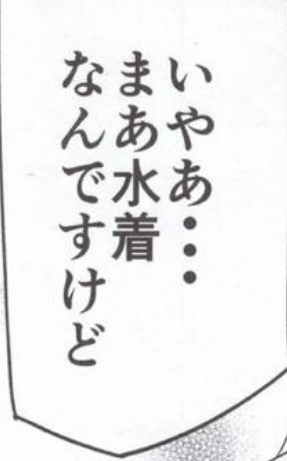 いやあ・・・
まあ水着
なんですけど